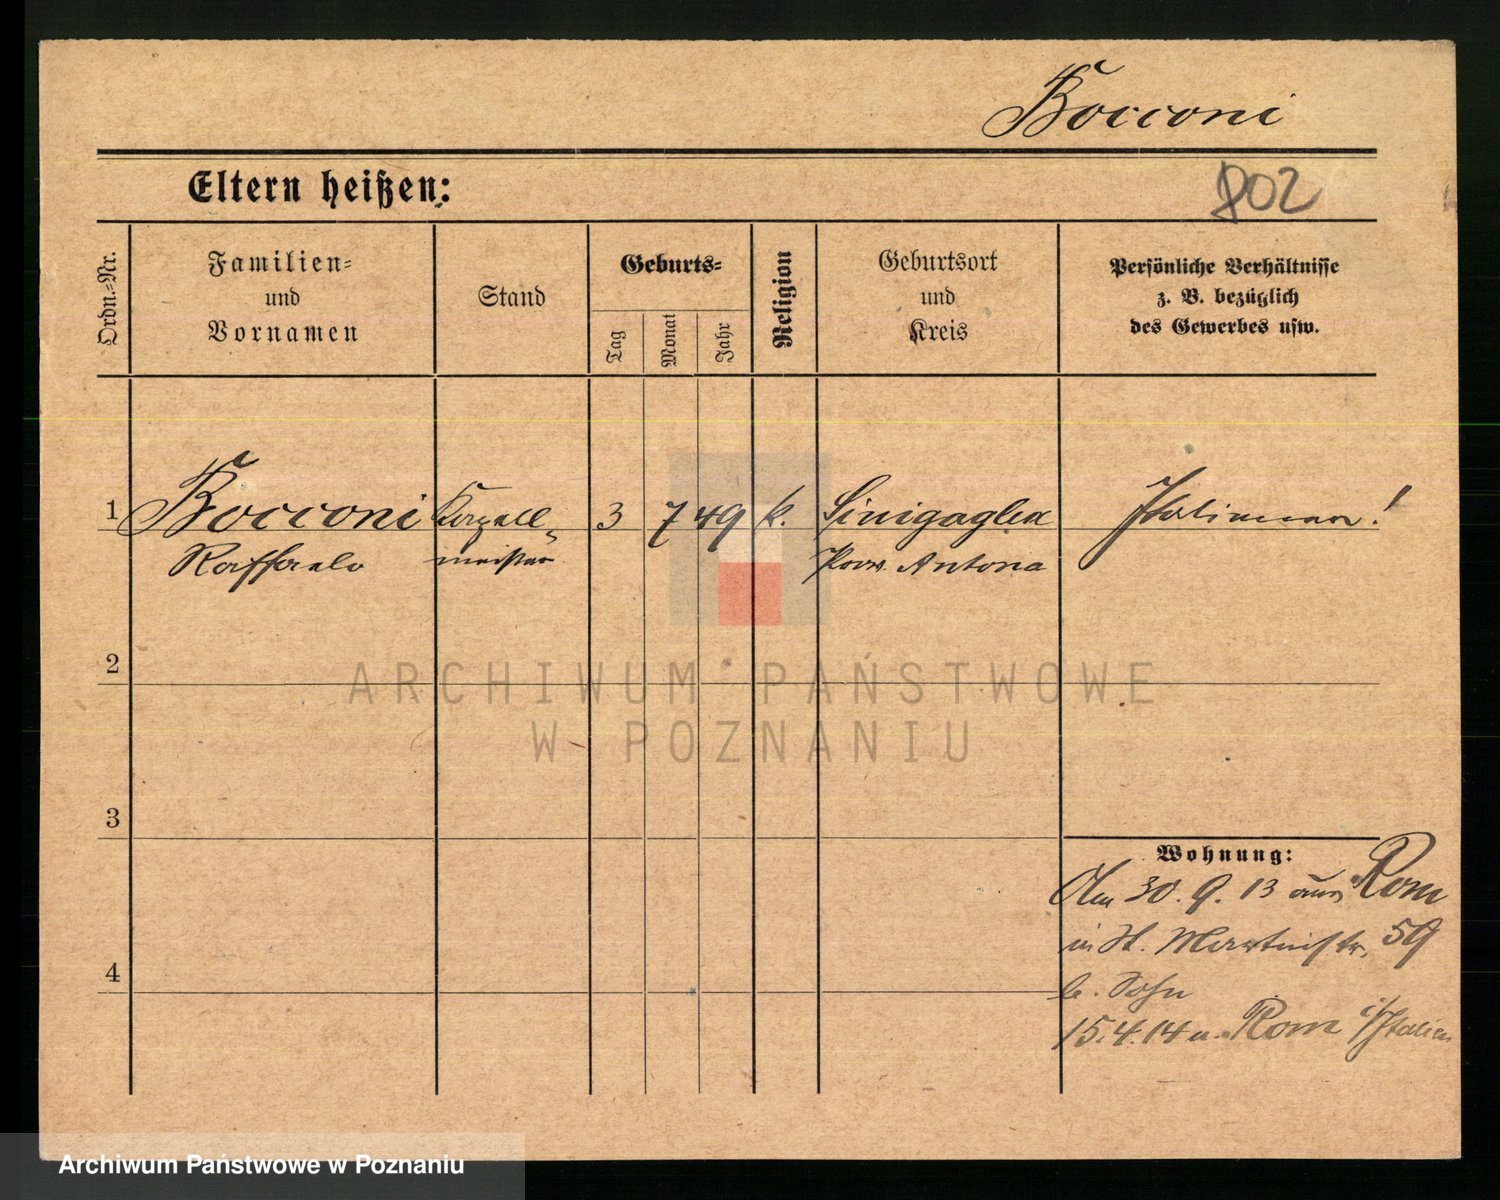 Bocconi
Eltern heißen:
802
Ordn.-Nr.
Familien-
und
Vornamen
Stand
Geburts-
Tag
Monat
Jahr
Religion
Geburtsort
und
Kreis
Persönliche Verhältnisse
z. B. bezüglich
des Gewerbes usw.
1 Bocconi Kapell- 3 7 49 k. Sinigaglia Italiener!
Raffaelo meister Prov. Antona
2
ARCHIWUM PAŃSTWOWE
W POZNANIU
3
Wohnung:
Am 30. 9. 13 aus Rom
in St. Martinstr. 59
b. Sohn
4
15.4.14 n. Rom i/Italien
Archiwum Państwowe w Poznaniu